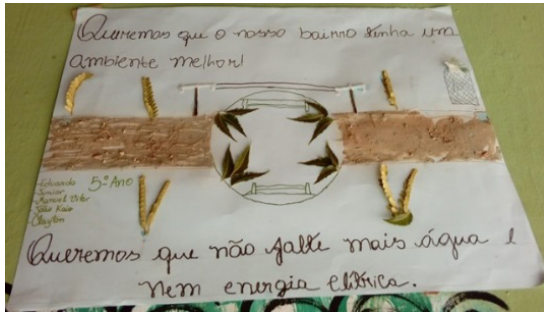 Queremos que o nosso bairro tinha um
ambiente melhor!
5º Ano
- Eduardo
- Junior
- Manuel Vitor
- João Kaio
- Clayton
Queremos que não falte mais água e
nem energia elétrica.